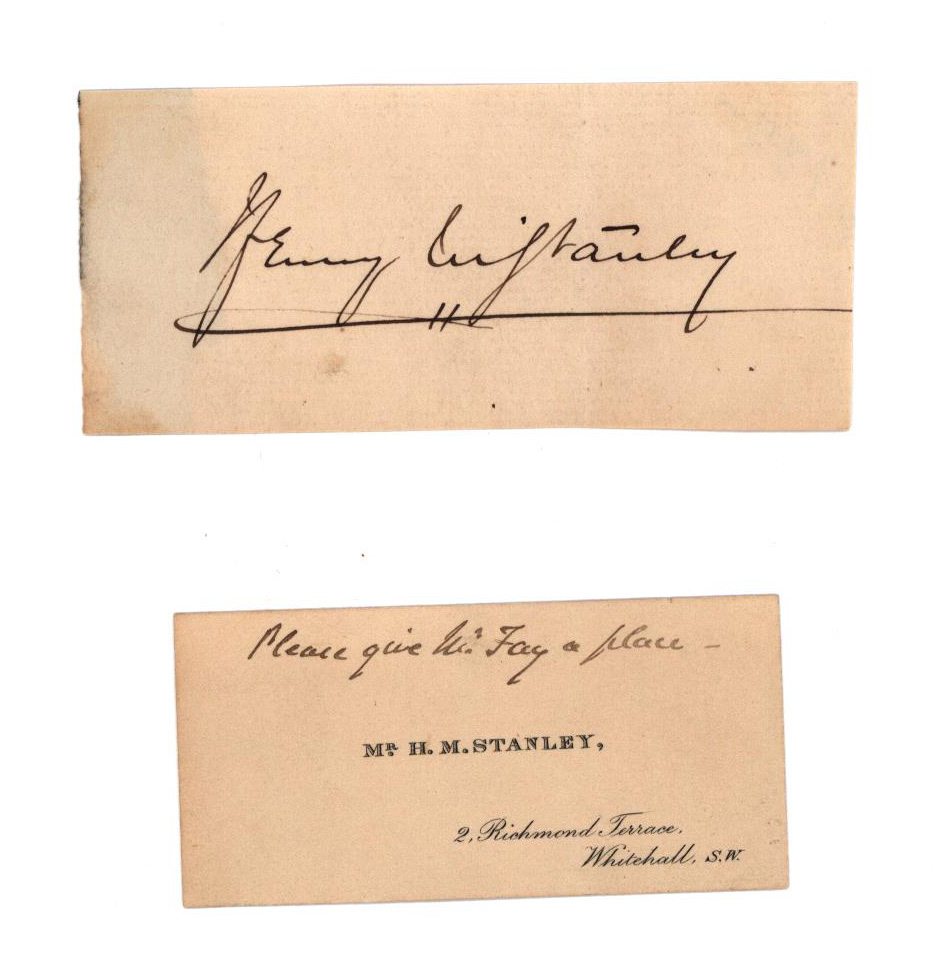 Henry M Stanley
Please give Mr Fay a place –
Mr. H. M. STANLEY,
2, Richmond Terrace,
Whitehall, S.W.